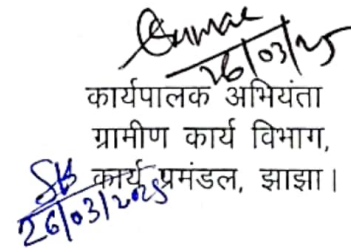 26/03/25
कार्यपालक अभियंता
ग्रामीण कार्य विभाग,
कार्य प्रमंडल, झाझा।
26/03/2025